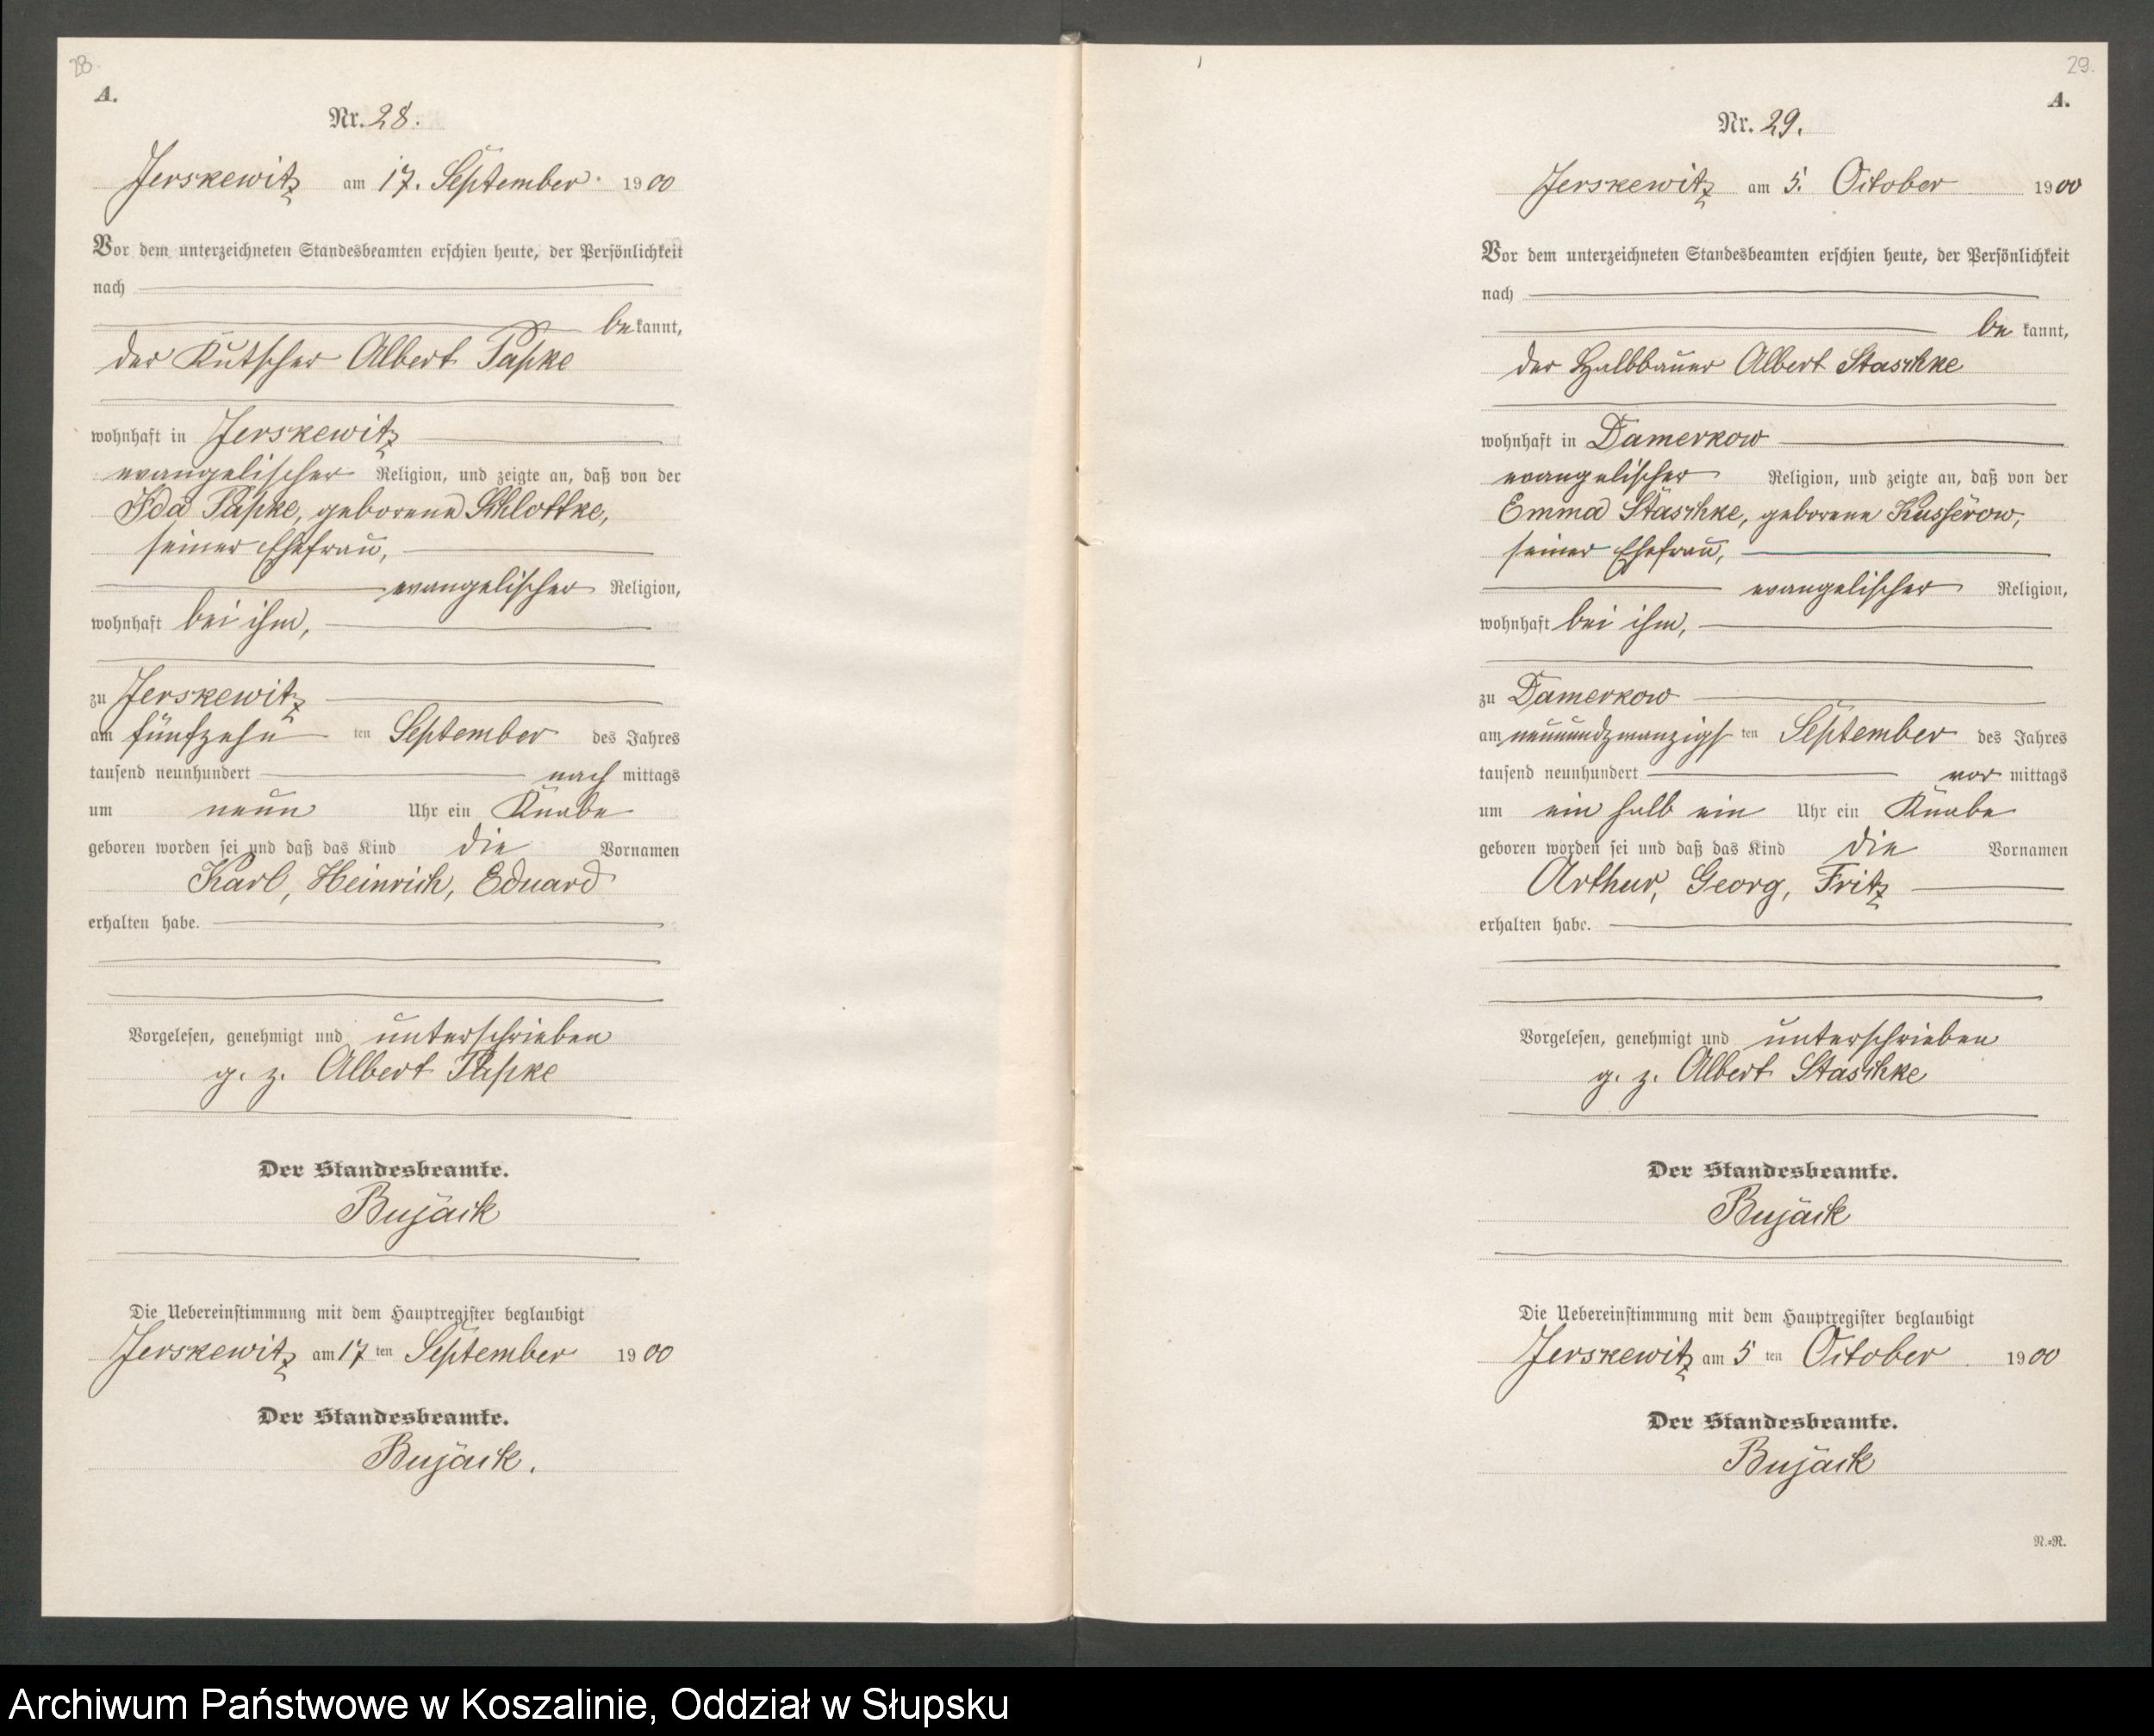 28.
A.
Nr. 28.
Jerskewitz am 17. September 1900
Vor dem unterzeichneten Standesbeamten erschien heute, der Persönlichkeit
nach
bekannt,
der Kutscher Albert Papke
wohnhaft in Jerskewitz
evangelischer Religion, und zeigte an, daß von der
Ida Papke, geborene Schlottke,
seiner Ehefrau,
evangelischer Religion,
wohnhaft bei ihm,
zu Jerskewitz
am fünfzehn ten September des Jahres
tausend neunhundert nach mittags
um neun Uhr ein Knabe
geboren worden sei und daß das Kind die Vornamen
Karl, Heinrich, Eduard
erhalten habe.
Vorgelesen, genehmigt und unterschrieben
g. z. Albert Papke
Der Standesbeamte.
Bujack
Die Uebereinstimmung mit dem Hauptregister beglaubigt
Jerskewitz am 17 ten September 1900
Der Standesbeamte.
Bujack.
29.
A.
Nr. 29.
Jerskewitz am 5. October 1900
Vor dem unterzeichneten Standesbeamten erschien heute, der Persönlichkeit
nach
be kannt,
der Halbbauer Albert Staschke
wohnhaft in Damerkow
evangelischer Religion, und zeigte an, daß von der
Emma Staschke, geborene Kusserow,
seiner Ehefrau,
evangelischer Religion,
wohnhaft bei ihm,
zu Damerkow
am neunundzwanzigs ten September des Jahres
tausend neunhundert vor mittags
um ein halb ein Uhr ein Knabe
geboren worden sei und daß das Kind die Vornamen
Arthur, Georg, Fritz
erhalten habe.
Vorgelesen, genehmigt und unterschrieben
g. z. Albert Staschke
Der Standesbeamte.
Bujack
Die Uebereinstimmung mit dem Hauptregister beglaubigt
Jerskewitz am 5 ten October 1900
Der Standesbeamte.
Bujack
N.=R.
Archiwum Państwowe w Koszalinie, Oddział w Słupsku